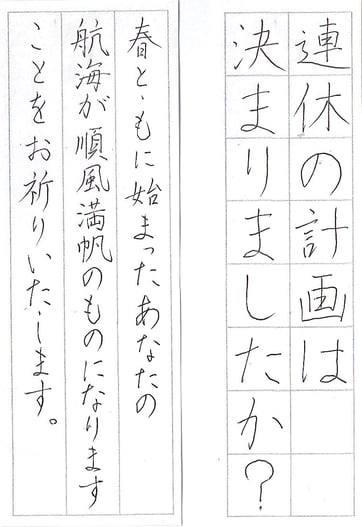 連休の計画は
決まりましたか?
春とともに始まったあなたの
航海が順風満帆のものになります
ことをお祈りいたします。